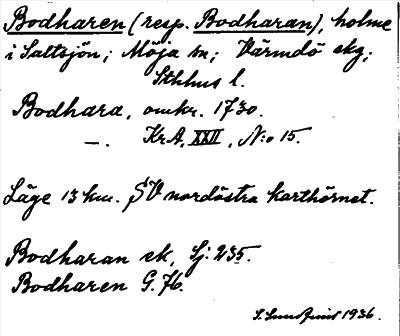 Bodharen (resp. Bodharan), holme
i Saltsjön; Möja sn; Värmdö skg;
Sthlms l.
Bodhara, omkr. 1730.
—. KrA, XXII, N:o 15.
Läge 13 km. SV nordöstra karthörnet.
Bodharan ek, Sj: 235.
Bodharen G. 76.
S. Lundquist 1936.